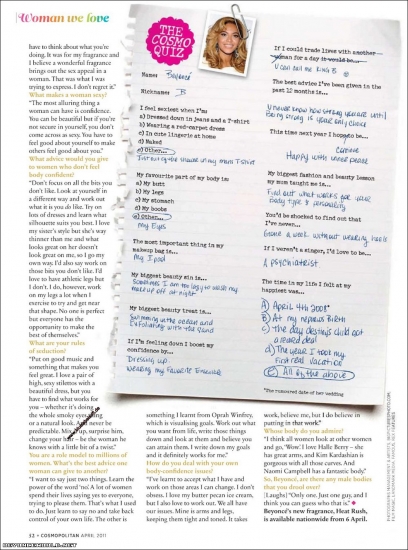 Woman we love
have to think about what you're
doing. It was for my fragrance and
I believe a wonderful fragrance
brings out the sex appeal in a
woman. That was what I was
trying to express. I don't regret it."
What makes a woman sexy?
"The most alluring thing a
woman can have is confidence.
You can be beautiful but if you're
not secure in yourself, you don't
come across as sexy. You have to
feel good about yourself to make
others feel good about you."
What advice would you give
to women who don't feel
body confident?
"Don't focus on all the bits you
don't like. Look at yourself in
a different way and work out
what it is you do like. Try on
lots of dresses and learn what
silhouette suits you best. I love
my sister's style but she's way
thinner than me and what
looks great on her doesn't
look great on me, so I go my
own way. I'd also say work on
those bits you don't like. I'd
love to have athletic legs but
I don't. I do, however, work
on my legs a lot when I
exercise to try and get near
that shape. No one is perfect
but everyone has the
opportunity to make the
best of themselves."
What are your rules
of seduction?
"Put on good music and
something that makes you
feel great. I love a pair of
high, sexy stilettos with a
beautiful dress, but you
have to find what works for
you – whether it's doing
the whole smoky eye
or a natural look. And never be
predictable. Mix up, surprise him.
change your – be the woman he
knows with a little bit of a twist."
You are a role model to millions of
women. What's the best advice one
woman can give to another?
"I want to say just two things. Learn the
power of the word 'no'. A lot of women
spend their lives saying yes to everyone,
trying to please them. That's what I used
to do. Just learn to say no and take back
control of your own life. The other is
THE COSMO QUIZ
Name Beyoncé
Nickname B
I feel sexiest when I'm
a) Dressed down in jeans and a T-shirt
b) Wearing a red-carpet dress
c) In cute lingerie at home
d) Naked
e) Other...
Just out of the shower in my mans T shirt
My favourite part of my body is:
a) My butt
b) My legs
c) My stomach
d) My boobs
e) Other...
My Eyes
The most important thing in my
makeup bag is...
My I pod
My biggest skin sin is...
Sometimes I am too lazy to wash my
make up off at night
My biggest beauty treat is...
Swimming in the ocean and
Exfoliating with the sand
If I'm feeling down I boost my
confidence by...
Dressing up
wearing my favorite Fragrance
If I could trade lives with another
woman for a day it would be...
U can call me King B
The best advice I've been given in the
past 12 months is...
U never know how strong you are until
being strong is your only choice
This time next year I hope to be...
Happy with inner peace
My biggest fashion and beauty lesson
my mum taught me is...
Find out what works for your
body type & personality
You'd be shocked to find out that
I've never...
Gone a week without wearing heels
If I weren't a singer, I'd love to be...
A psychiatrist
The time in my life I felt at my
happiest was...
A) April 4th 2008*
B) At my nephews Birth
C) The day destinys child got
a record deal
d) The year I took my
first real vacation
e) All of the above
*The rumored date of her wedding
something I learnt from Oprah Winfrey,
which is visualising goals. Work out what
you want from life, write those things
down and look at them and believe you
can attain them. I wrote down my goals
and it definitely works for me."
How do you deal with your own
body-confidence issues?
"I've learnt to accept what I have and
work on those areas I can change. I don't
obsess. I love my butter pecan ice cream,
but I also love to work out. We all have
our issues. Mine is arms and legs,
keeping them tight and toned. It takes
work, believe me, but I do believe in
putting in that work."
Whose body do you admire?
"I think all women look at other women
and go, 'Wow'. I love Halle Berry – she
has great arms, and Kim Kardashian is
gorgeous with all those curves. And
Naomi Campbell has a fantastic body."
So, Beyoncé, are there any male bodies
that you drool over?
[Laughs] "Only one. Just one guy, and I
think you can guess who that is."
Beyoncé's new fragrance, Heat Rush,
is available nationwide from 6 April.
52 • COSMOPOLITAN APRIL 2011